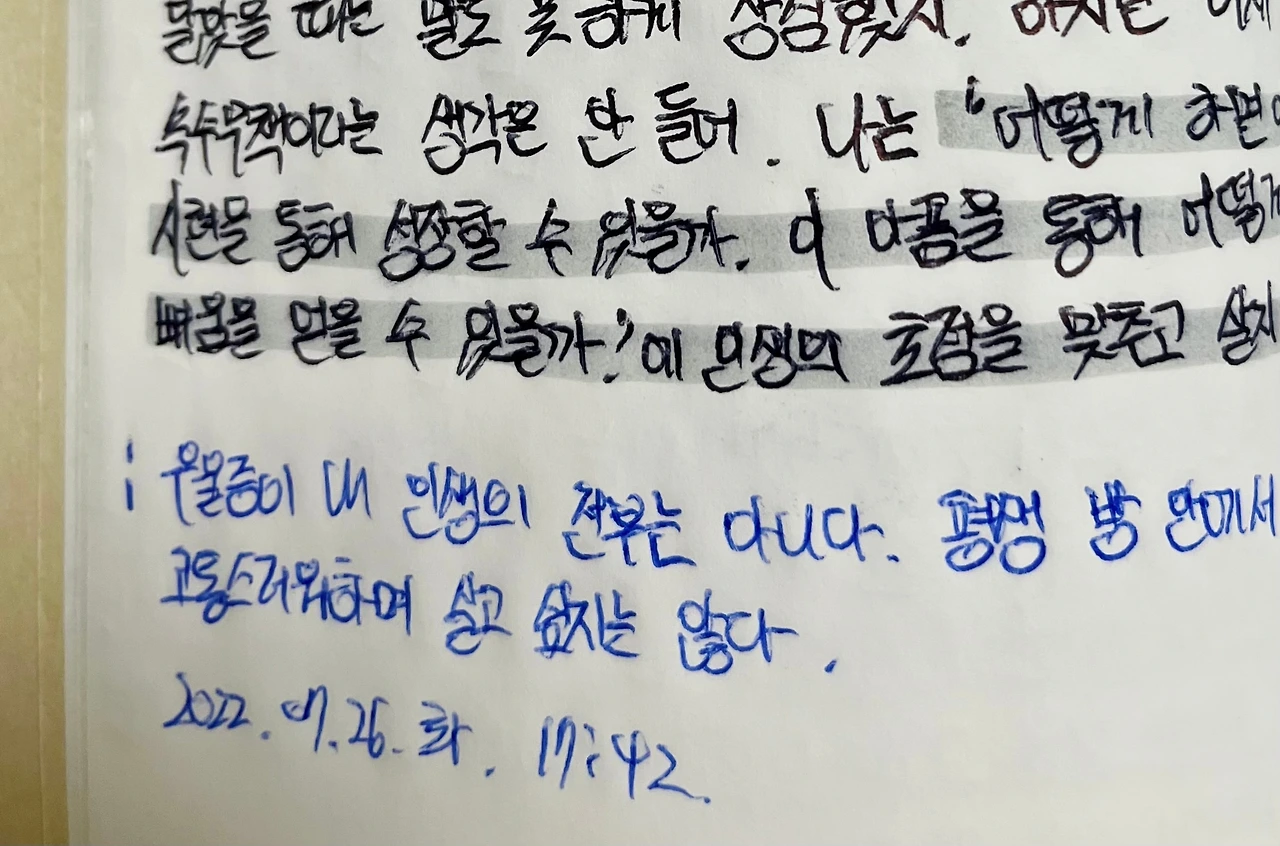 때는 말도 못하게 상심했지. 하지만
속수무책이라는 생각은 안 들어. 나는 '어떻게 하면
시련을 통해 성장할 수 있을까. 이 아픔을 통해 어떻게
배움을 얻을 수 있을까.'에 인생의 초점을 맞추고 살지
¡ 우울증이 내 인생의 전부는 아니다. 평생 방 안에서
고통스러워하며 살고 싶지는 않다.
2022. 07. 26. 화. 17:42.